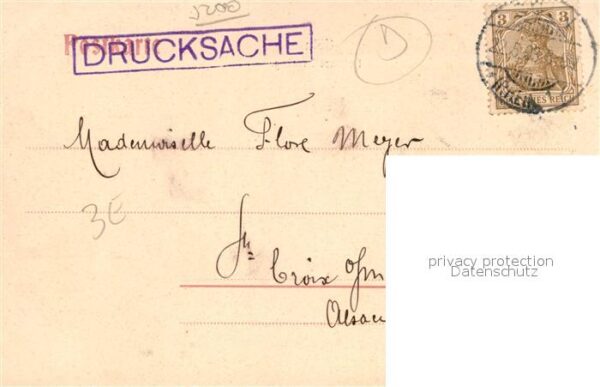 1200
Postkarte
DRUCKSACHE
D
3 3
REICH
Mademoiselle Flore Meyer
3E
Ste Croix
Alsac
privacy protection
Datenschutz